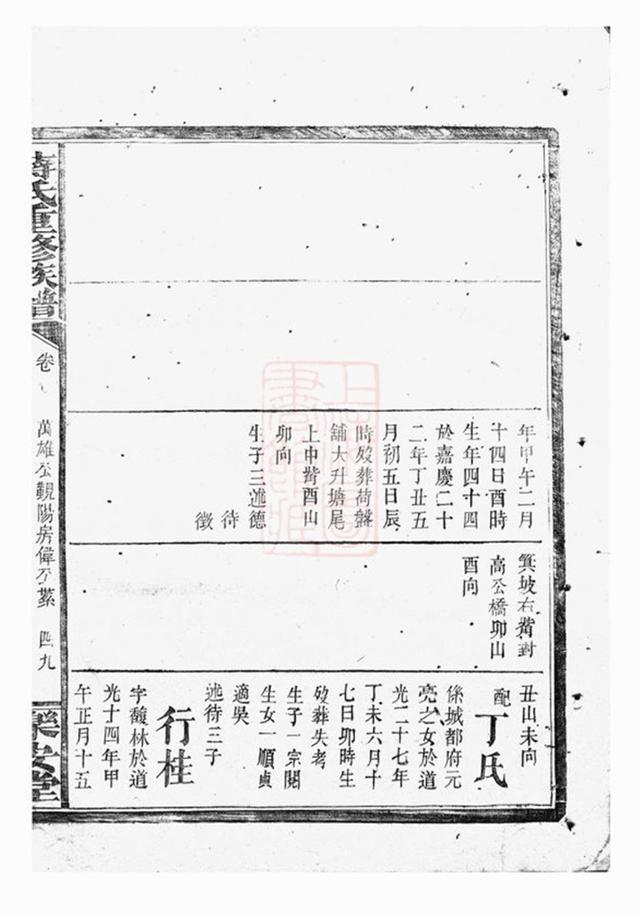 年甲午二月
十四日酉時
生年四十四
於嘉慶二十
二年丁丑五
月初五日辰
時歿葬荷盤
舖大升塘尾
上中嘴酉山
卯向
生子三述德
待
徵
箕坡右嘴封
高公橋卯山
酉向
丑山未向
配丁氏
係城都府元
亮之女於道
光二十七年
丁未六月十
七日卯時生
歿葬失考
生子一宗閱
生女一順貞
適吳
述待三子
行桂
字馥林於道
光十四年甲
午正月十五
蔣氏重修族譜
卷
萬雄公觀陽房偉公系
四九
樂安堂